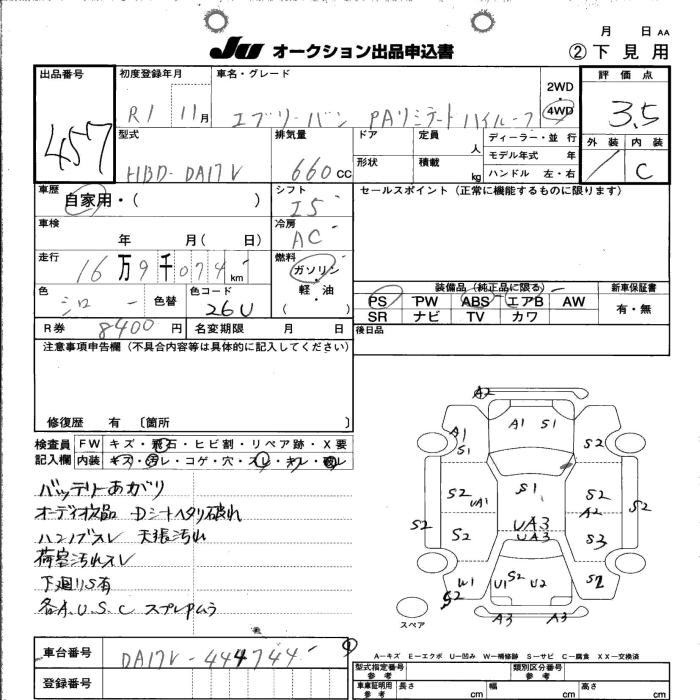 月 日 AA
JU オークション出品申込書 ②下見用
出品番号 457
初度登録年月 R1 11月
車名・グレード エブリーバン PAリミテートハイルーフ
2WD
4WD
評価点 3.5
外装 内装 C
型式 HBD-DA17V
排気量 660cc
ドア 定員 人
形状 積載 kg
ディーラー・並行
モデル年式 年
ハンドル 左・右
車歴 自家用・( )
シフト I5
セールスポイント(正常に機能するものに限ります)
車検 年 月( 日)
冷房 AC
走行 16万9千074km
燃料 ガソリン・軽・油 ( )
色 シロー 色替 色コード 26U
装備品(純正品に限る) 新車保証書
PS PW ABS エアB AW 有・無
SR ナビ TV カワ
R券 8400円 名変期限 月 日
後日品
注意事項申告欄(不具合内容等は具体的に記入してください)
修復歴 有 〔箇所 〕
検査員記入欄
FW キズ・飛石・ヒビ割・リペア跡・X要
内装 キズ・汚レ・コゲ・穴・スレ・キレ・破レ
バッテリーあがり
オーディオ欠品 Dシートヘタリ破れ
ハンドブスレ 天張汚れ
荷室汚れスレ
下廻りS有
各A.U.S.C スプレPムラ
A2
A1 S1
A1
S1
S2
S2
UA1
S1
S2
A2
S2
S2
S2
UA3
UA3
S3
W1
S2
U1 S2 U2
S2
A3 A3
スペア
A−キズ E−エクボ U−凹み W−補修跡 S−サビ C−腐食 XX−交換済
車台番号 DA17V-444744
登録番号
型式指定番号 参考
類別区分番号 参考
車庫証明用 参考 長さ cm 幅 cm 高さ cm